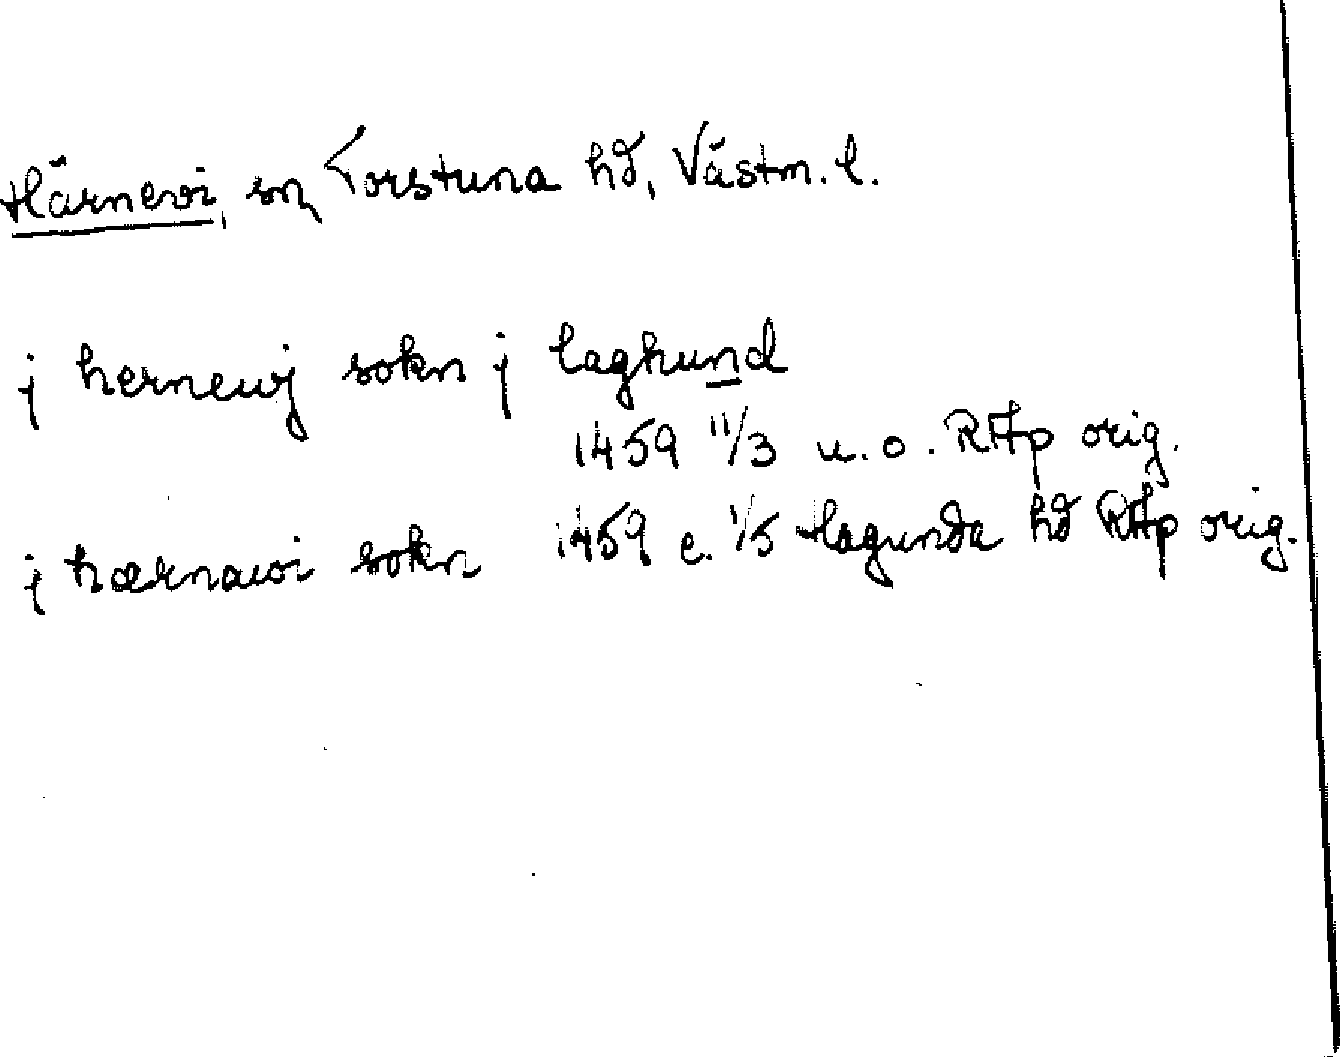 Härnevi, sn, Torstuna hd, Västm. l.
j hernewj sokn j laghund
1459 11/3 u.o. RAp orig.
j hærnawi sokn 1459 e. 1/5 Hagunda hd RAp orig.